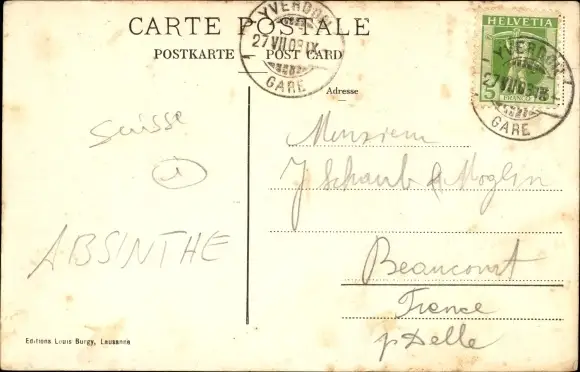 CARTE POSTALE
POSTKARTE POST CARD
YVERDON
27 VII 09 IX
GARE
HELVETIA
5
YVERDON
27 VII 09
GARE
Adresse
Suisse
Monsieur
J Schaub
Beaucourt
France
p Delle
ABSINTHE
Editions Louis Burgy, Lausanne